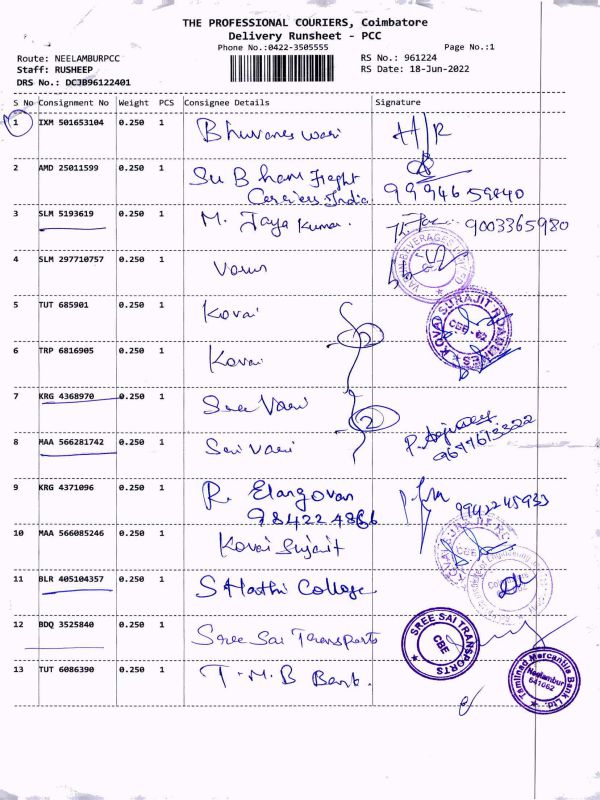 THE PROFESSIONAL COURIERS, Coimbatore
Delivery Runsheet - PCC
Phone No.:0422-3505555 Page No.:1
Route: NEELAMBURPCC RS No.: 961224
Staff: RUSHEEP RS Date: 18-Jun-2022
DRS No.: DCJB96122401
S No Consignment No Weight PCS Consignee Details Signature
1 IXM 501653104 0.250 1 Bhuvaneswari H/R
2 AMD 25011599 0.250 1 SuBham Frieght
Carriers India 9994659840
3 SLM 5193619 0.250 1 M. Jaya Kumar. 9003365980
4 SLM 297710757 0.250 1 Varun
BEVERAGES
5 TUT 685901 0.250 1 Kovai
KOVAI SURAJIT ROADLINES
CBE - 62
6 TRP 6816905 0.250 1 Kovai
7 KRG 4368970 0.250 1 Sree Vari 2
8 MAA 566281742 0.250 1 Sri Vari 9677613322
9 KRG 4371096 0.250 1 R. Elangovan
984224866 9942245933
10 MAA 566085246 0.250 1 Kovai Surjait
CBE
11 BLR 405104357 0.250 1 SHathi College
12 BDQ 3525840 0.250 1 Sree Sai Transports
SREE SAI TRANSPORTS
CBE
13 TUT 6086390 0.250 1 T.M.B Bank.
Tamilnad Mercantile Bank Ltd.
Neelambur
641062